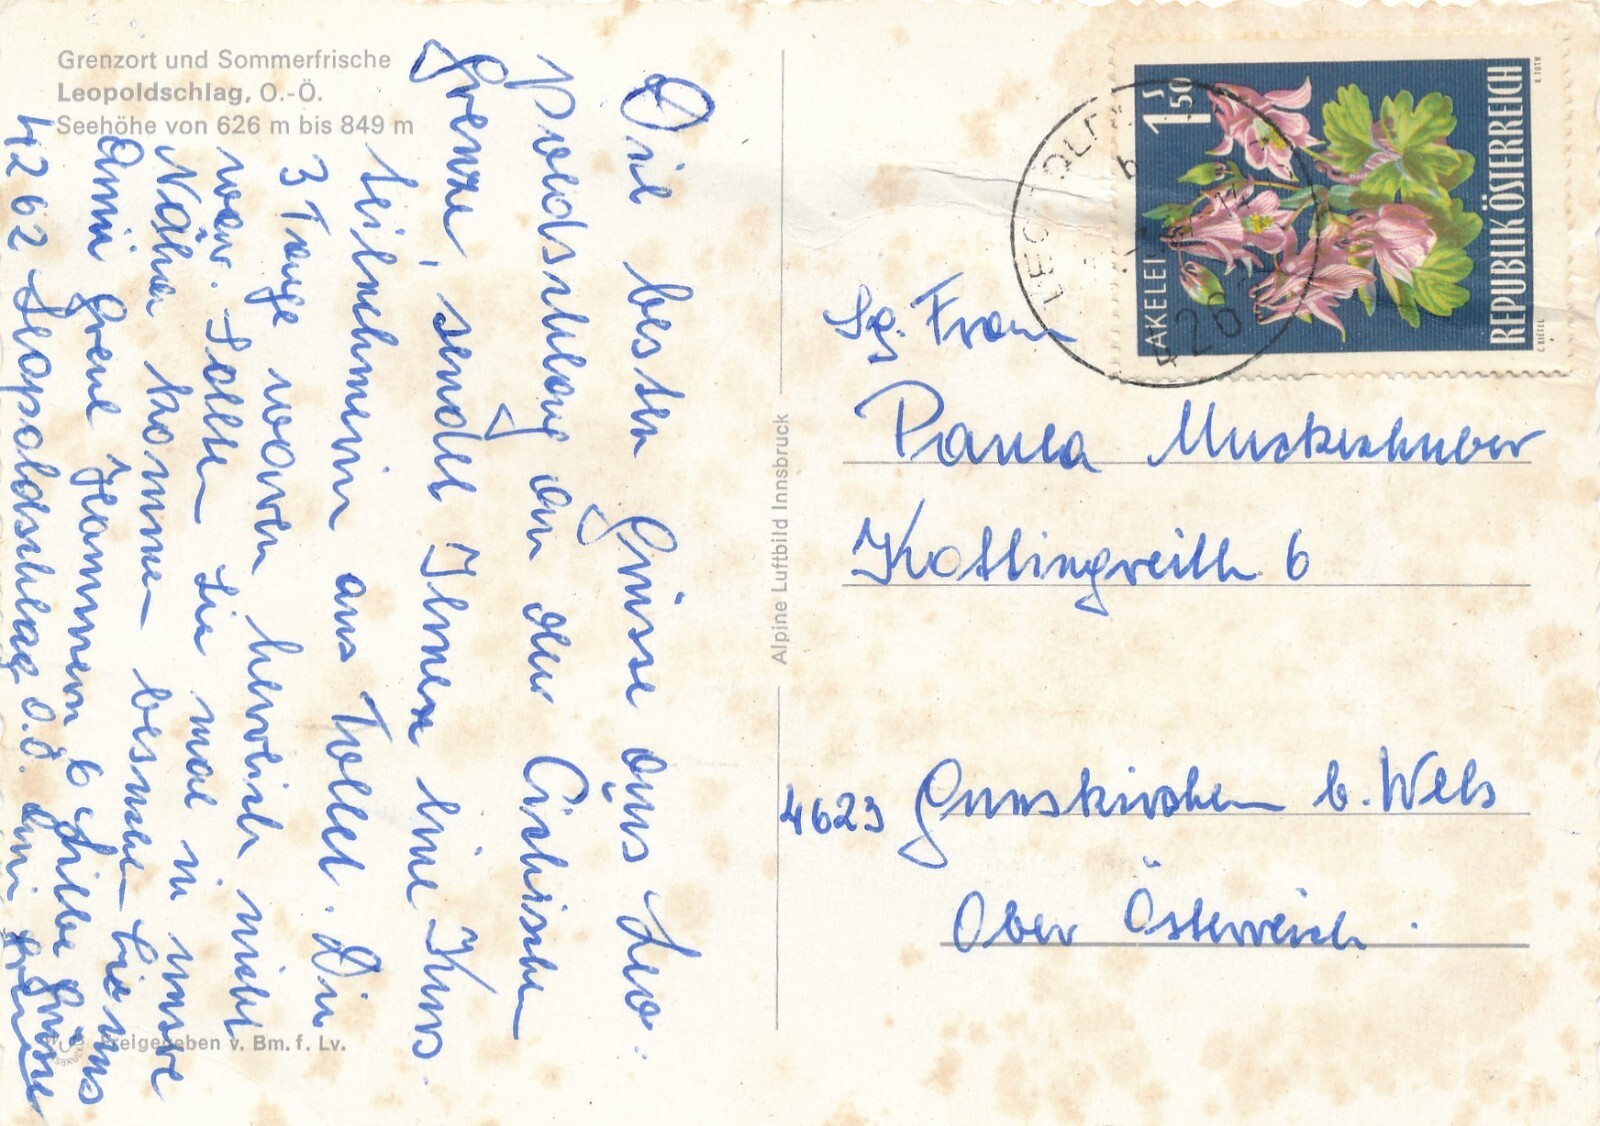 Grenzort und Sommerfrische
Leopoldschlag, O.-Ö.
Seehöhe von 626 m bis 849 m
Die besten Grüsse aus Leo-
poldschlag an der Cechischen
Grenze, sendet Ihnen eine Kurs
teilnehmerin aus Tollet. Die
3 Tage waren herrlich nicht
war. Sollten Sie mal in unsere
Nähe kommen besuchen Sie uns
Anni Grene Hammern 6 Liebe Grüsse
4262 Leopoldschlag o.Ö.
Freigegeben v. Bm. f. Lv.
Alpine Luftbild Innsbruck
AKELEI
1 S 50
REPUBLIK ÖSTERREICH
Sg. Frau
Paula Muckenhuber
Kottingreith 6
4623 Gunskirchen b. Wels
Ober Österreich.